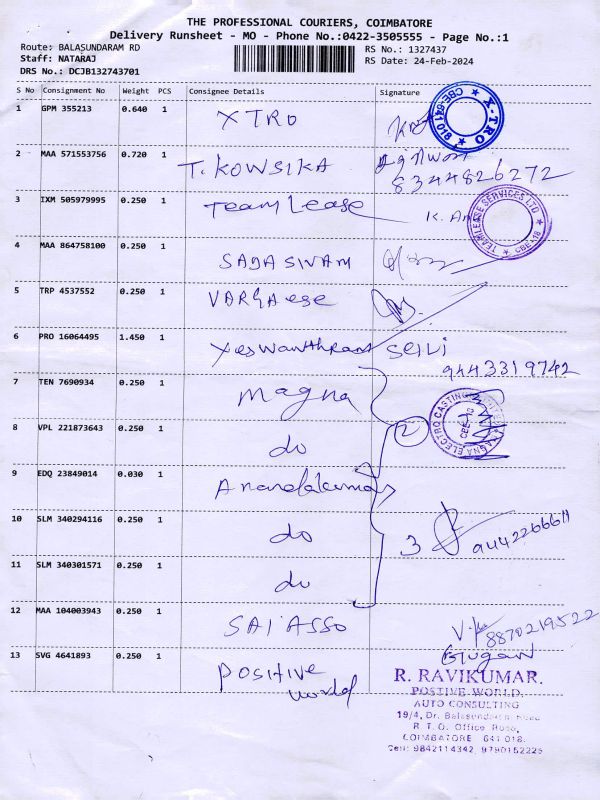 THE PROFESSIONAL COURIERS, COIMBATORE
Delivery Runsheet - MO - Phone No.:0422-3505555 - Page No.:1
Route: BALASUNDARAM RD
RS No.: 1327437
Staff: NATARAJ
RS Date: 24-Feb-2024
DRS No.: DCJB132743701
S No Consignment No Weight PCS Consignee Details Signature
1 GPM 355213 0.640 1 XTRO
X-TRO
2 MAA 571553756 0.720 1 T. KOWSIKA
8344826272
3 IXM 505979995 0.250 1 Team Lease K. An
TEAMLEASE SERVICES LTD
CBE-18
4 MAA 864758100 0.250 1 SADASIVAM
5 TRP 4537552 0.250 1 VARGHese
6 PRO 16064495 1.450 1 Yeswanthram Selvi
9443319742
7 TEN 7690934 0.250 1 Magna
MAGNA ELECTRO CASTINGS LIMITED
8 VPL 221873643 0.250 1 do 2
9 EDQ 23849014 0.030 1 Anandakumar
10 SLM 340294116 0.250 1 do 3 9442266611
11 SLM 340301571 0.250 1 do
12 MAA 104003943 0.250 1 SAI ASSO
8870219522
13 SVG 4641893 0.250 1 Positive
world
R. RAVIKUMAR.
POSTIVE WORLD,
AUTO CONSULTING
19/4, Dr. Balasundaram Road
R. T. O. Office Road,
COIMBATORE 641 018.
Cell: 9842114342, 9790152225